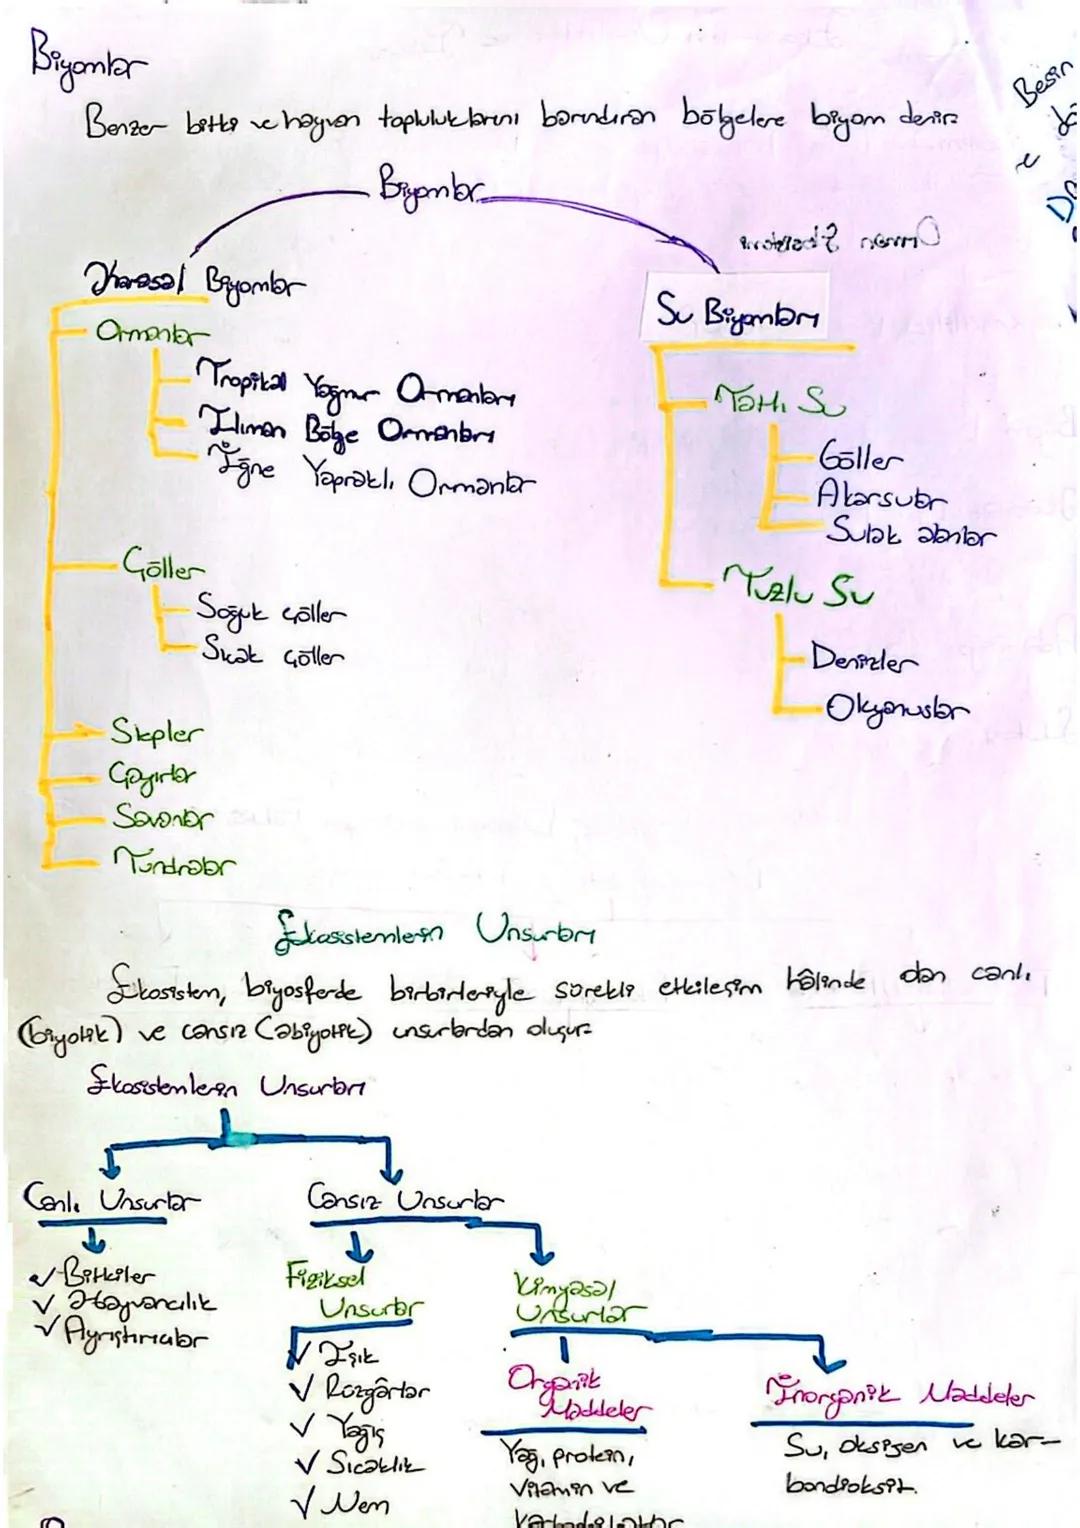 Biyomlar
Benzer bitki ve hayvan topluluklarını barındıran bölgelere biyom denir.
Besin
Biyomlar
Karasal Biyomlar
Ormanlar
Tropikal Yağmur Ormanları
Ilıman Bölge Ormanları
İğne Yapraklı Ormanlar
Çöller
Soğuk Çöller
Sıcak Çöller
Stepler
Çayırlar
Savanlar
Tundralar
Su Biyomları
Tatlı Su
Göller
Akarsular
Sulak alanlar
Tuzlu Su
Denizler
Okyanuslar
Ekosistemlerin Unsurları
Ekosistem, biyosferde birbirleriyle sürekli etkileşim hâlinde olan canlı
(biyotik) ve cansız (abiyotik) unsurlardan oluşur.
Ekosistemlerin Unsurları
Canlı Unsurlar
✓ Bitkiler
✓ Hayvancılık
✓ Ayrıştırıcılar
Cansız Unsurlar
Fiziksel
Unsurlar
✓ Işık
✓ Rüzgârlar
✓ Yağış
✓ Sıcaklık
✓ Nem
Kimyasal
Unsurlar
Organik
Maddeler
Yağ, protein,
vitamin ve
karbonhidratlar
İnorganik Maddeler
Su, oksijen ve kar-
bondioksit.